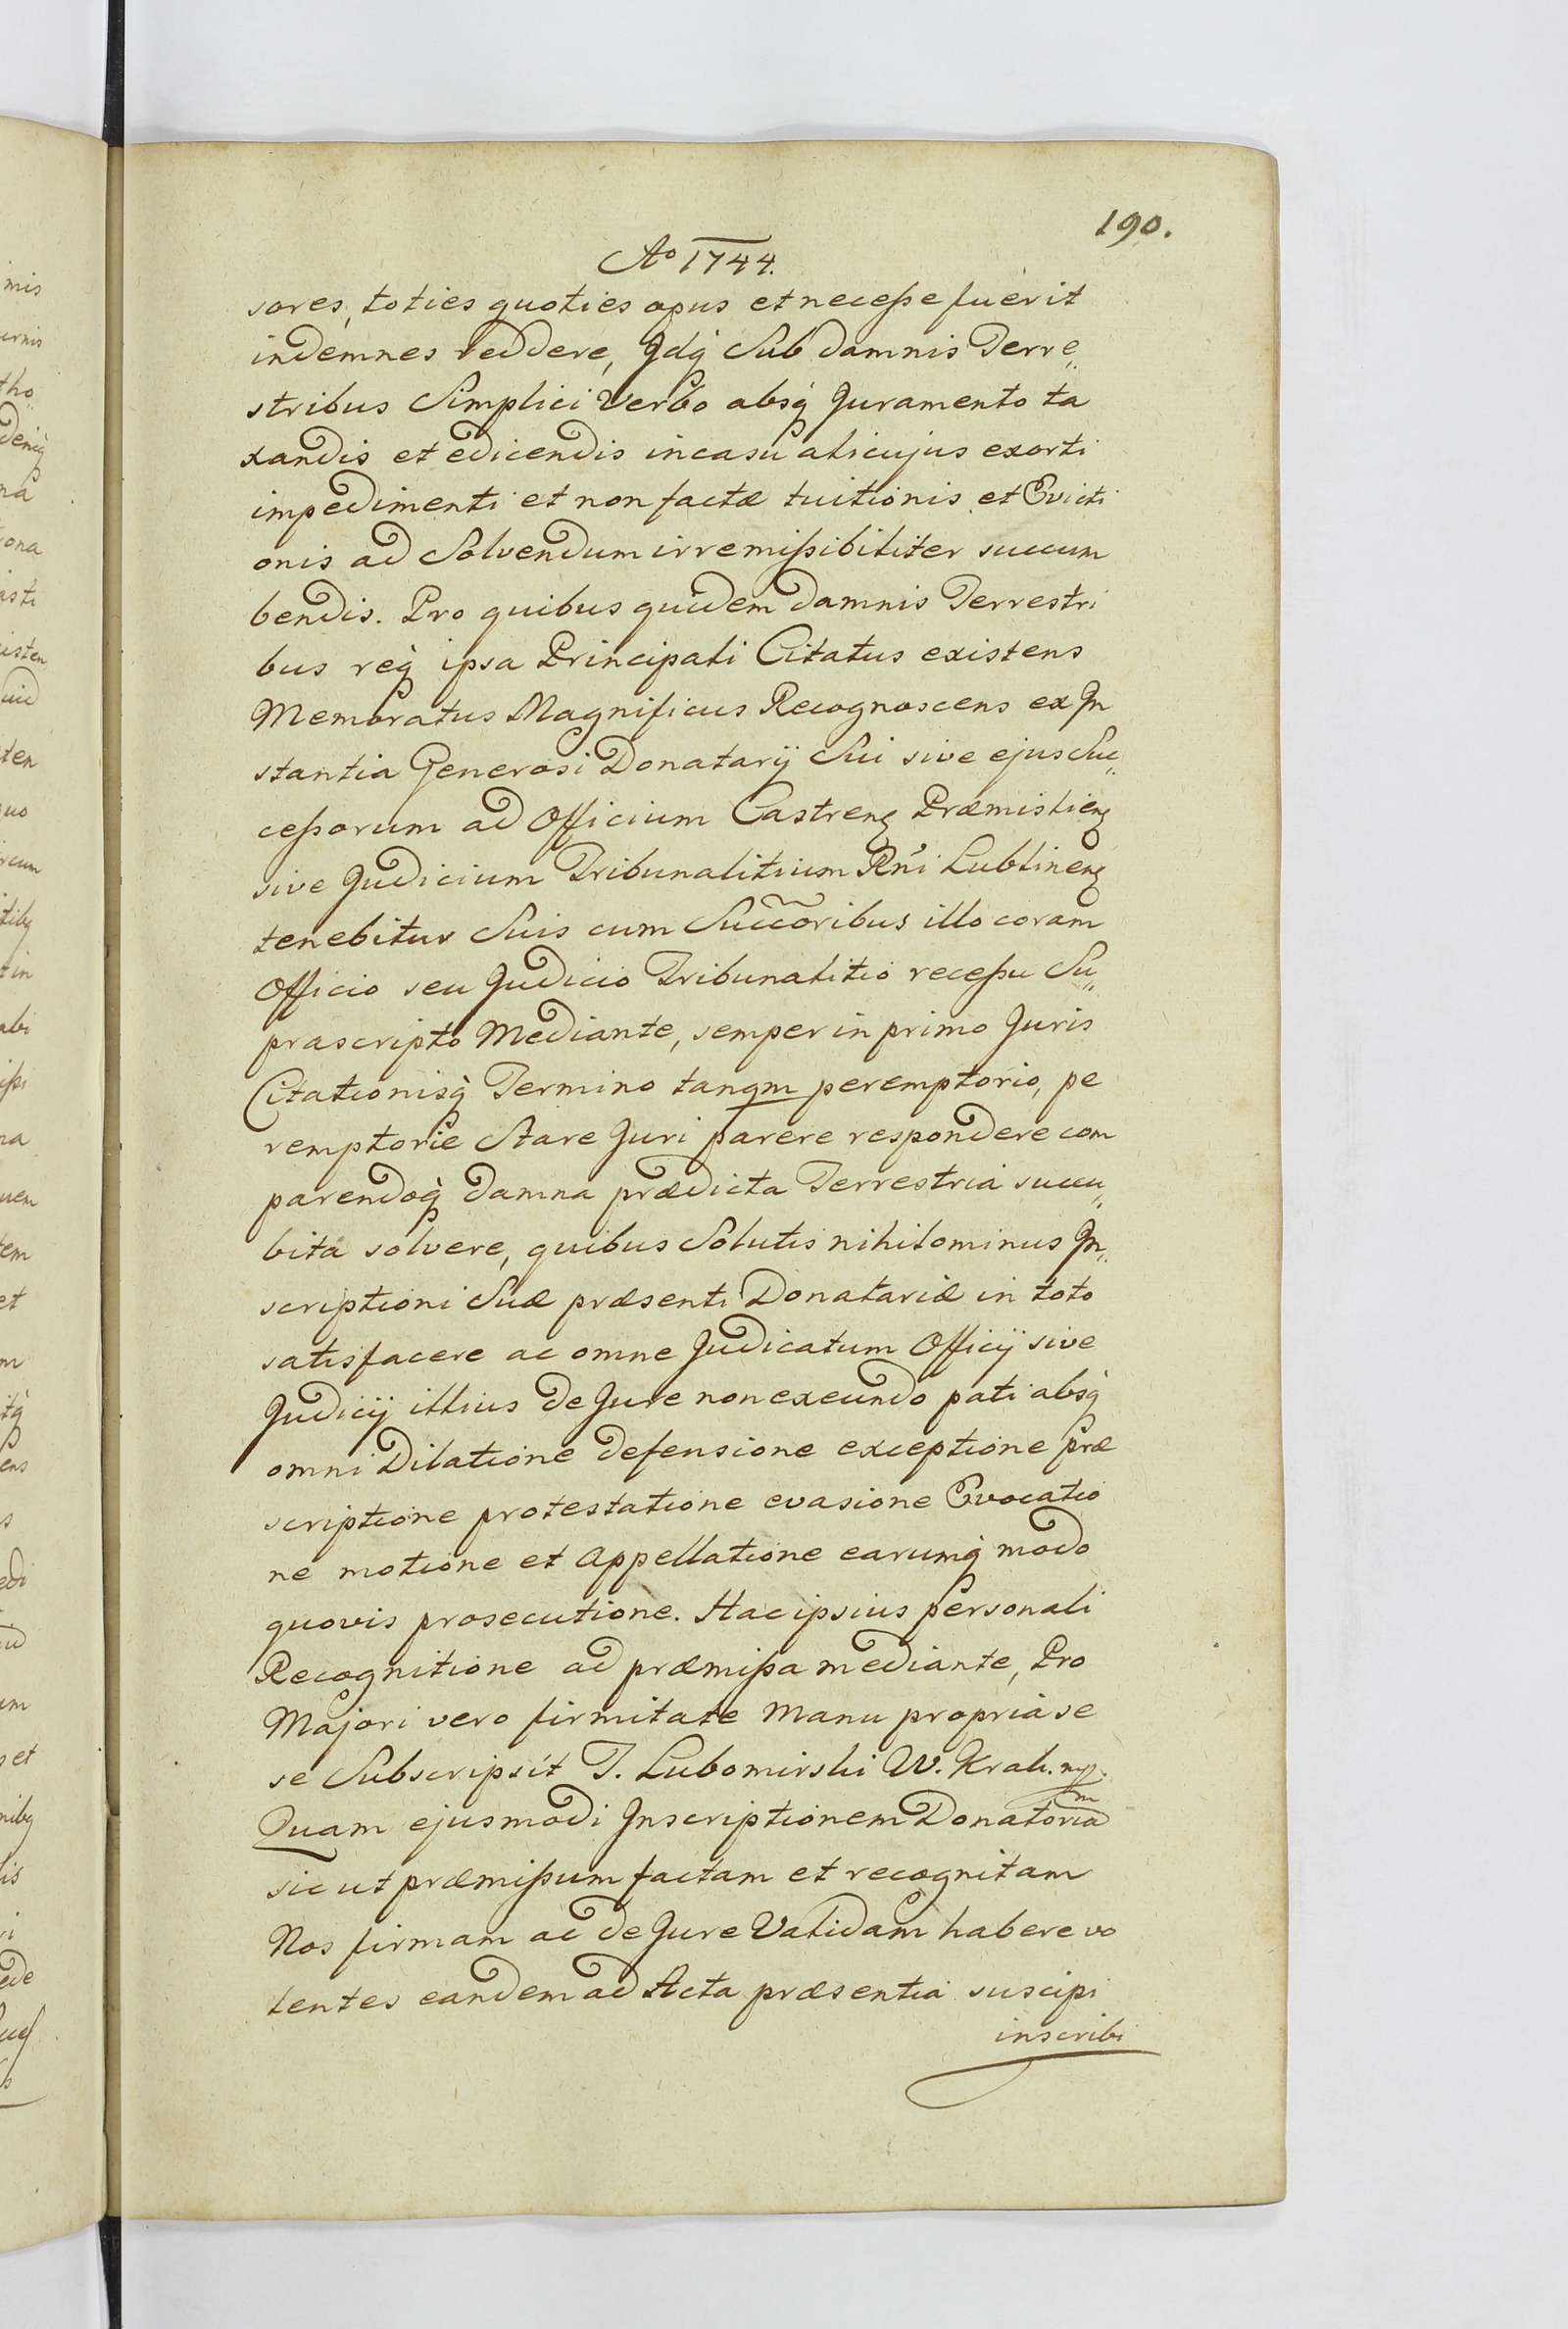 190.
Ao 1744.
sores, toties quoties opus et necesse fuerit
indemnes reddere, Idq̀ Sub damnis Terre„
stribus Simplici Verbo absq̀ Juramento ta
xandis et edicendis in casu alicujus exorti
impedimenti et non factæ tuitionis et Evicti
onis ad Solvendum irremissibiliter succum
bendis. Pro quibus quidem damnis Terrestri
bus req̀ ipsa Principali Citatus existens
Memoratus Magnificus Recognoscens ex In
stantia Generosi Donatarij Sui sive ejus Suc„
cessorum ad Officium Castrenꝫ Præmislienꝫ
sive Judicium Tribunalitium Rńi Lublinenꝫ
tenebitur Suis cum Succ̃oribus illo coram
Officio seu Judicio Tribunalitio recessu Su„
prascripto Mediante, semper in primo Juris
Citationisq̀ Termino tanqm peremptorio, pe
remptorie Stare Juri parere respondere com
parendoq̀ damna prædicta Terrestria succu„
bita solvere, quibus Solutis nihilominus In„
scriptioni Suæ præsenti Donatariæ in toto
satisfacere ac omne Judicatum Officij sive
Judicij illius de Jure non exeundo pati absq̀
omni Dilatione defensione exceptione præ
scriptione protestatione evasione Evocatio
ne motione et Appellatione earumq̀ modo
quovis prosecutione. Hac ipsius personali
Recognitione ad præmissa mediante, Pro
Majori vero firmitate Manu propria se
se Subscripsit T. Lubomirski W. Krak. mp.
Quam ejusmodi Inscriptionem Donatoriam
sic ut præmissum factam et recognitam
Nos firmam ac de Jure Validam habere vo
lentes eandem ad Acta præsentia suscipi
inscribi